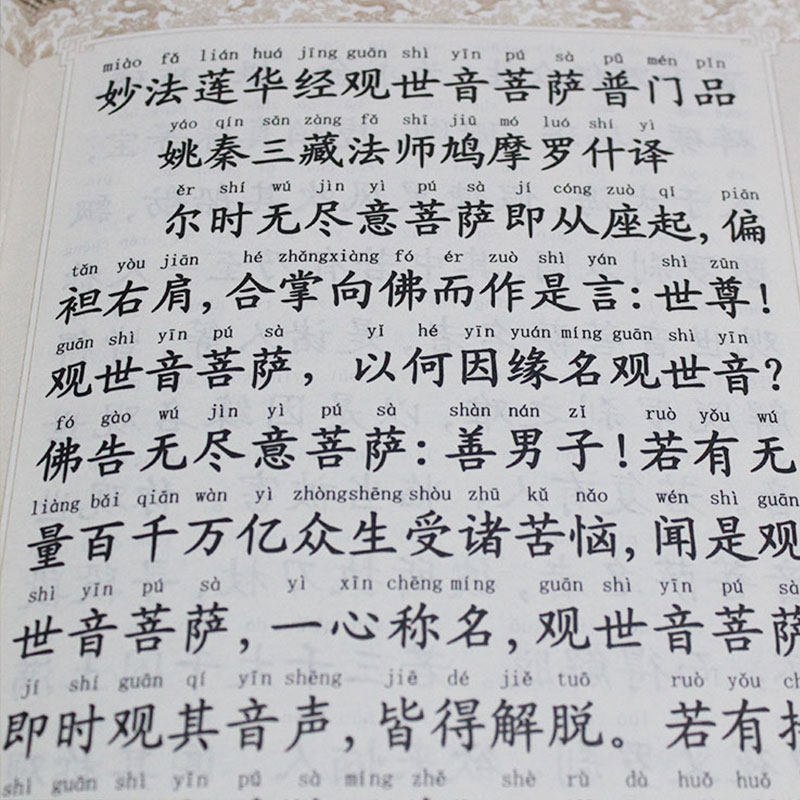 miào fǎ lián huá jīng guān shì yīn pú sà pǔ mén pǐn
妙法莲华经观世音菩萨普门品
yáo qín sān zàng fǎ shī jiū mó luó shí yì
姚秦三藏法师鸠摩罗什译
ěr shí wú jìn yì pú sà jí cóng zuò qǐ piān
尔时无尽意菩萨即从座起,偏
tǎn yòu jiān hé zhǎng xiàng fó ér zuò shì yán shì zūn
袒右肩,合掌向佛而作是言:世尊!
guān shì yīn pú sà yǐ hé yīn yuán míng guān shì yīn
观世音菩萨,以何因缘名观世音?
fó gào wú jìn yì pú sà shàn nán zǐ ruò yǒu wú
佛告无尽意菩萨:善男子!若有无
liàng bǎi qiān wàn yì zhòng shēng shòu zhū kǔ nǎo wén shì guān
量百千万亿众生受诸苦恼,闻是观
shì yīn pú sà yì xīn chēng míng guān shì yīn pú sà
世音菩萨,一心称名,观世音菩萨
jí shí guān qí yīn shēng jiē dé jiě tuō ruò yǒu
即时观其音声,皆得解脱。若有
shì guān shì yīn pú sà míng zhě shè rù dà huǒ huǒ